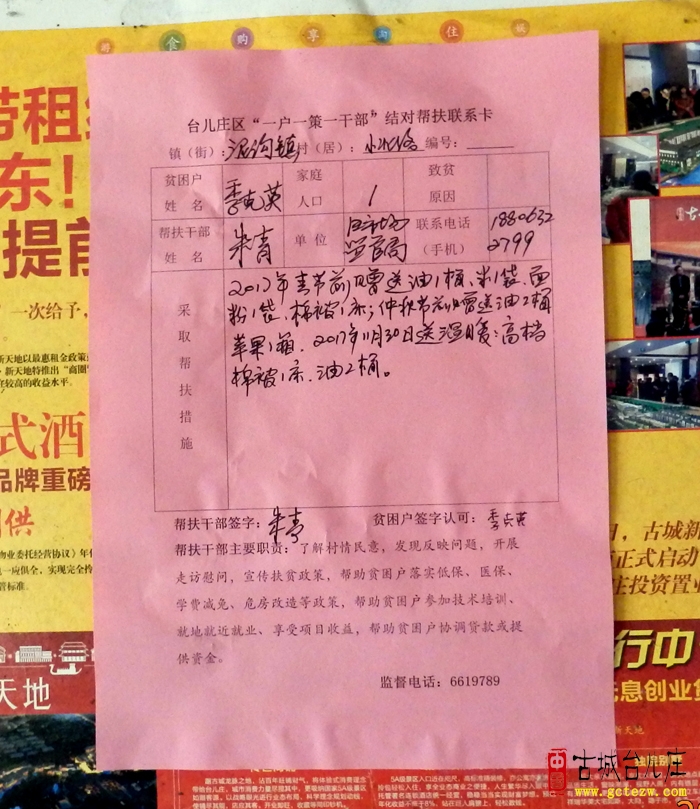 食 购 享 向 住 娱
台儿庄区“一户一策一干部”结对帮扶联系卡
镇（街）：泥沟镇 村（居）： 编号：
贫困户姓名 季克英 家庭人口 1 致贫原因
帮扶干部姓名 朱青 单位 联系电话（手机） 18806322799
采取帮扶措施
2017年春节前夕曾送油1桶、米1袋、面
粉1袋、棉被1床；仲秋节前夕曾送油2桶
苹果1箱、2017年11月30日送温暖：高档
棉被1床、油2桶。
帮扶干部签字：朱青 贫困户签字认可：季克英
帮扶干部主要职责：了解村情民意，发现反映问题，开展
走访慰问，宣传扶贫政策，帮助贫困户落实低保、医保、
学费减免、危房改造等政策，帮助贫困户参加技术培训、
就地就近就业、享受项目收益，帮助贫困户协调贷款或提
供资金。
监督电话：6619789
带租
东！
提前
一次给予，
新天地以最惠租金政策
新天地特推出“商圈
较高的收益水平。
式酒
品牌重磅
供
物业委托经营协议》年
一应俱全，实现完全
管标准。
天地
日，古城新
正式启动
庄投资置业
行中
息创业
新天地
古城台儿庄
www.gctezw.com